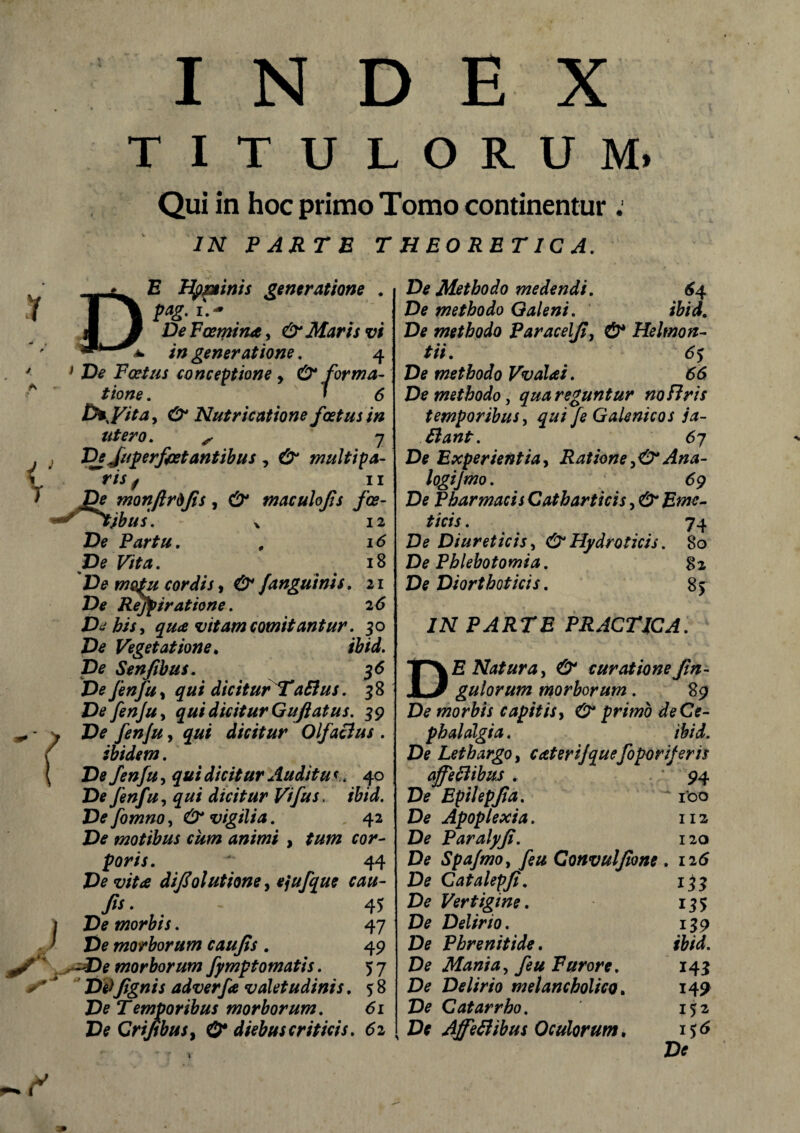 INDEX
TITULORUM,
Qui in hoc primo Tomo continentur.
IN PARTE THEORETICA.
DE Hominis generatione .
pag. 1.
De Fœminæ, & Maris vi
in generatione. 4
De Fœtus conceptione , & forma-
tione. 6
De Vita, & Nutricatione fœtus in
utero. 7
De superfœtantibus , & multipa-
ris, 11
De monstrosis , & maculosis fœ-
tibus. 12
De Partu. 16
De Vita. 18
De motu cordis, & sanguinis. 21
De Respiratione. 26
De his, quæ vitam comitantur. 30
De Vegetatione. ibid.
De Sensibus. 36
De sensu, qui dicitur Tactus. 38
De sensu, qui dicitur Gustatus. 39
De sensu, qui dicitur Olfactus .
ibidem.
De sensu, qui dicitur Auditus. 40
De sensu, qui dicitur Visus. ibid.
De somno, & vigilia. 42
De motibus cùm animi , tum cor-
poris. 44
De vitæ dissolutione, ejusque cau-
sis. 45
De morbis. 47
De morborum causis . 49
De morborum symptomatis. 57
De signis adversæ valetudinis. 58
De Temporibus morborum. 61
De Crisibus, & diebus criticis. 62
De Methodo medendi. 64
De methodo Galeni. ibid.
De methodo Paracelsi, & Helmon-
tii. 65
De methodo Vvalæi. 66
De methodo , qua reguntur nostris
temporibus, qui se Galenicos ja-
ctant. 67
De Experientia, Ratione, & Ana-
logismo. 69
De Pharmacis Catharticis, & Eme-
ticis. 74
De Diureticis, & Hydroticis. 80
De Phlebotomia. 82
De Diorthoticis. 85
IN PARTE PRACTICA.
DE Natura, & curatione sin-
gulorum morborum . 89
De morbis capitis, & primò de Ce-
phalalgia. ibid.
De Lethargo, cæterisque soporiferis
affectibus . 94
De Epilepsia. 100
De Apoplexia. 112
De Paralysi. 120
De Spasmo, seu Convulsione . 126
De Catalepsi. 133
De Vertigine. 135
De Delirio. 139
De Phrenitide. ibid.
De Mania, seu Furore. 143
De Delirio melancholico. 149
De Catarrho. 152
De Affectibus Oculorum. 156
De